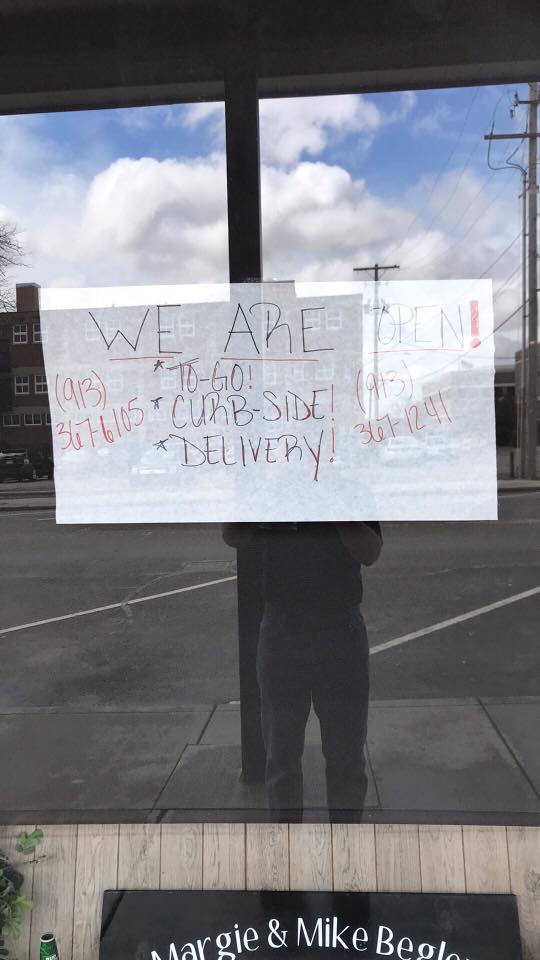 WE ARE OPEN!
* TO-GO!
* CURB-SIDE!
* DELIVERY!
(913)
367-6105
(913)
367-1241
Margie & Mike